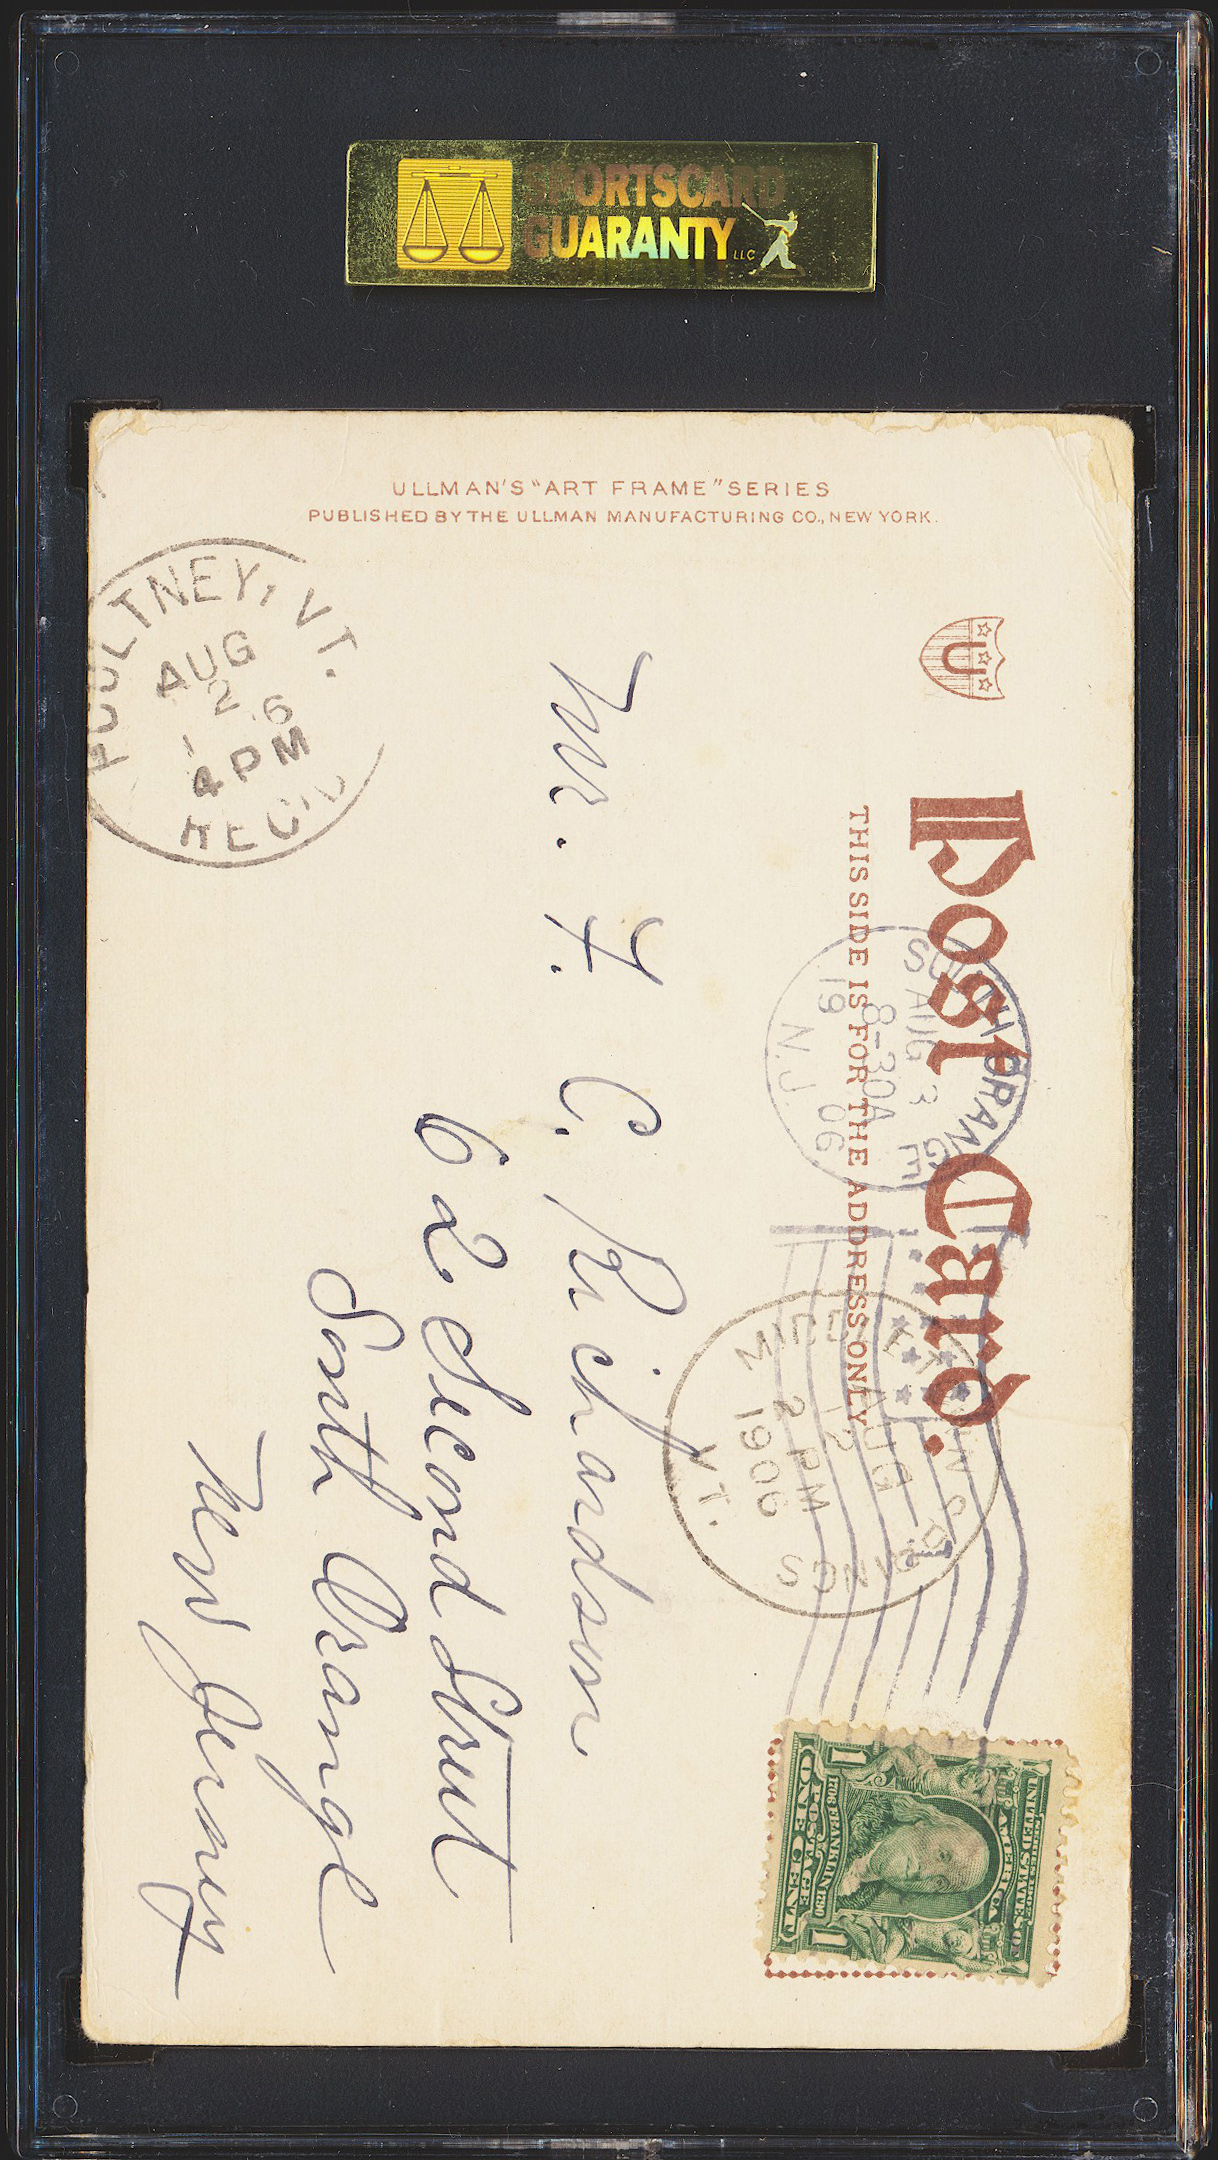 SPORTSCARD
GUARANTY LLC
ULLMAN'S "ART FRAME" SERIES
PUBLISHED BY THE ULLMAN MANUFACTURING CO., NEW YORK.
U
Post Card.
THIS SIDE IS FOR THE ADDRESS ONLY.
POULTNEY, VT.
AUG
2 6
4 PM
REC'D
SOUTH ORANGE
AUG 3
8-30A
19 06
N.J.
SPRINGS
AUG
2
2 PM
1906
VT.
SERIES 1902
UNITED STATES OF
AMERICA
1706 FRANKLIN 1790
1 POSTAGE 1
ONE CENT
Mr. F. C. Richardson
62 Second Street
South Orange
New Jersey